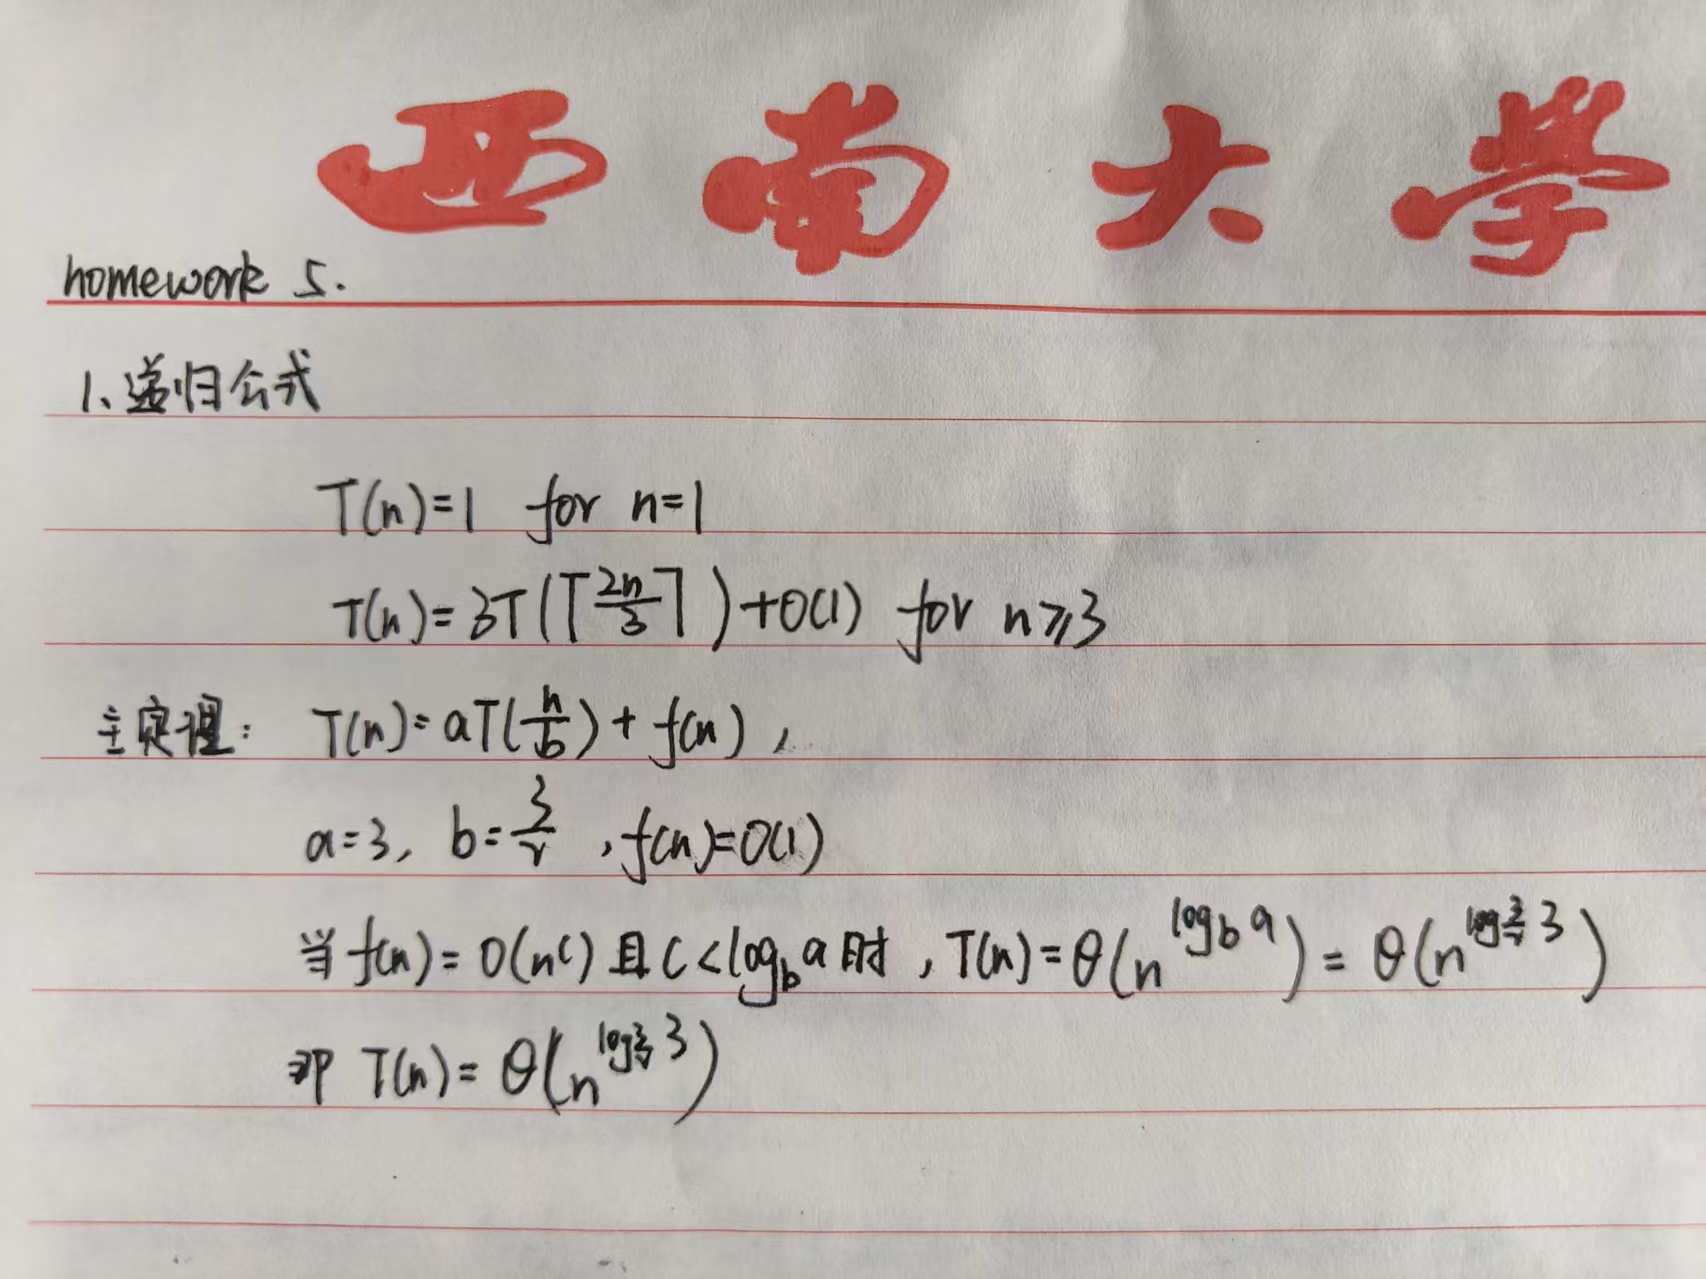 西南大学
homework 5.
1、递归公式
T(n)=1 for n=1
T(n)=3T(⌈2n/3⌉)+O(1) for n⩾3
主定理: T(n)=aT(n/b)+f(n),
a=3, b=3/2, f(n)=O(1)
当 f(n)=O(n^c) 且 c<log_b a 时, T(n)=θ(n^(log_b a))=θ(n^(log_(3/2) 3))
即 T(n)=θ(n^(log_(3/2) 3))